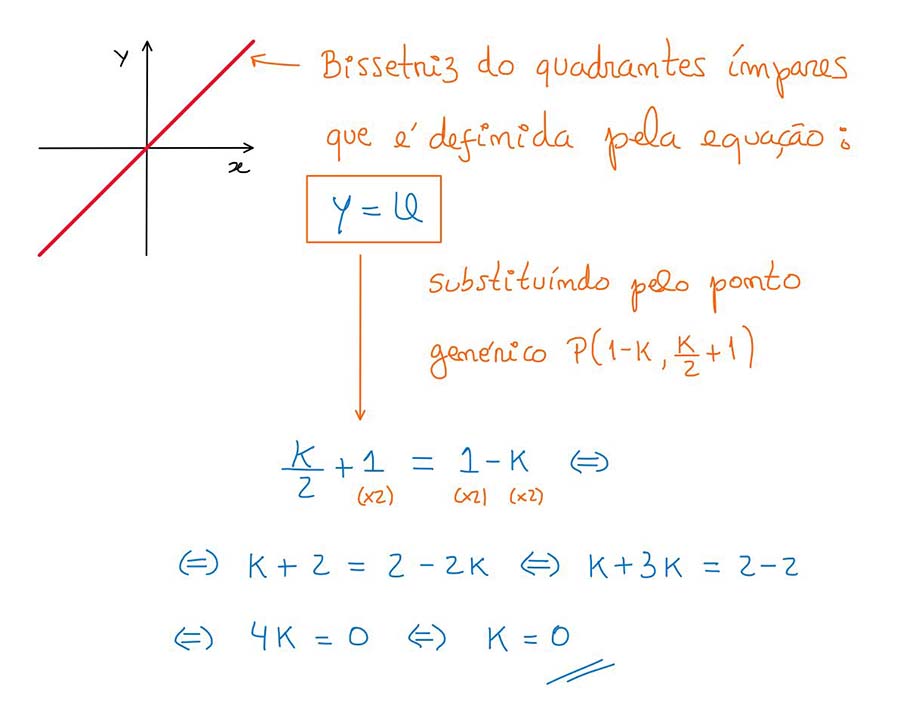 y
Bissetriz do quadrantes ímpares
que é definida pela equação:
x
y = x
substituíndo pelo ponto
genérico P(1-K, K/2+1)
K/2 + 1 = 1 - K ⇔
(x2) (x2) (x2)
⇔ K + 2 = 2 - 2K ⇔ K + 3K = 2 - 2
⇔ 4K = 0 ⇔ K = 0